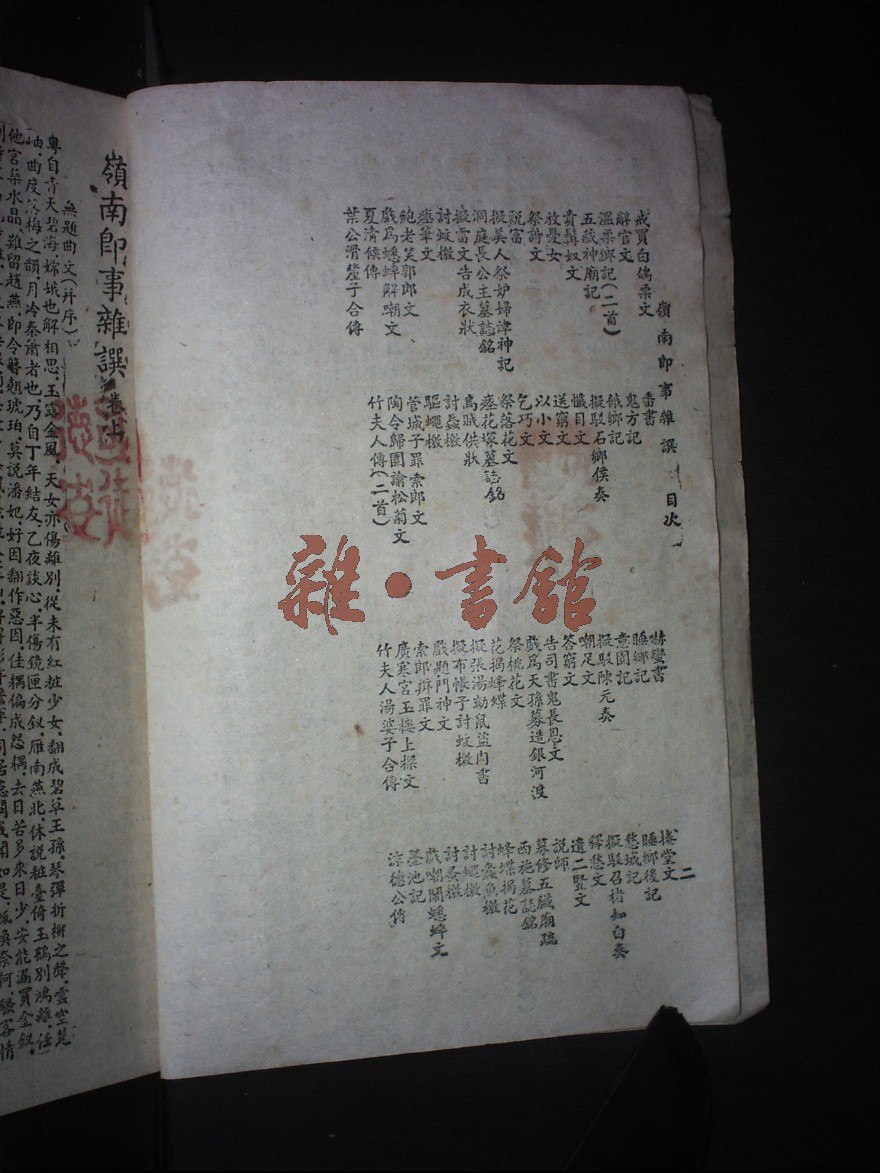 嶺南即事雜譔 目次 二
戒買白鴿票文
辭官文
溫柔鄉記(二首)
五藏神廟記
責髯奴文
放憂女
祭詩文
説富
擬美人祭妒婦津神記
洞庭長公主墓誌銘
擬雷文告成衣狀
討蚊檄
瘞筆文
鮑老笑郭郎文
戲爲蟋蟀解嘲文
夏清侯傳
葉公滑釐子合傳
番書
鬼方記
餓鄉記
擬駁石鄉侯奏
懺目文
送窮文
以小文
乞巧文
祭落花文
瘞花塚墓誌銘
烏賊供狀
討蝨檄
驅蠅檄
管城子罪索郎文
陶令歸園諭松菊文
竹夫人傳(二首)
嚇蠻書
睡鄉記
意園記
擬駁陳元奏
嘲足文
答窮文
告司書鬼長恩文
戲爲天孫募造銀河渡
祭桃花文
花揭蜂蝶
擬張湯劾鼠盜肉書
擬布帳子討蚊檄
戲題門神文
索郎辨罪文
廣寒宮玉樓上樑文
竹夫人湯婆子合傳
捲堂文
睡鄉後記
愁城記
擬駁召楮知白奏
釋愁文
遣二豎文
説師
募修五臟廟疏
西施墓誌銘
蜂蝶揭花
討蠹魚檄
討蠅檄
討蚤檄
戲嘲鬧蟋蟀文
墨池記
涼德公傳
嶺南即事雜譔
無題曲文(并序)
粵自青天碧海、嫦娥也解相思、玉露金風、天女亦傷離別、從未有紅粧少女、翻成碧草王孫、琴彈折柳之聲、雲空楚
岫、曲度落梅之韻、月冷秦簫者也、乃自丁年結友、乙夜談心、半傷鏡匣分釵、雁南燕北、休說粧臺倚玉、鶴別鴻離、任
他宮築水晶、難留趙燕、即令簪頹琥珀、莫說潘妃、好因翻作惡因、佳耦偏成怨耦、去日苦多、來日少、安能漏買金釵、
雜·書館